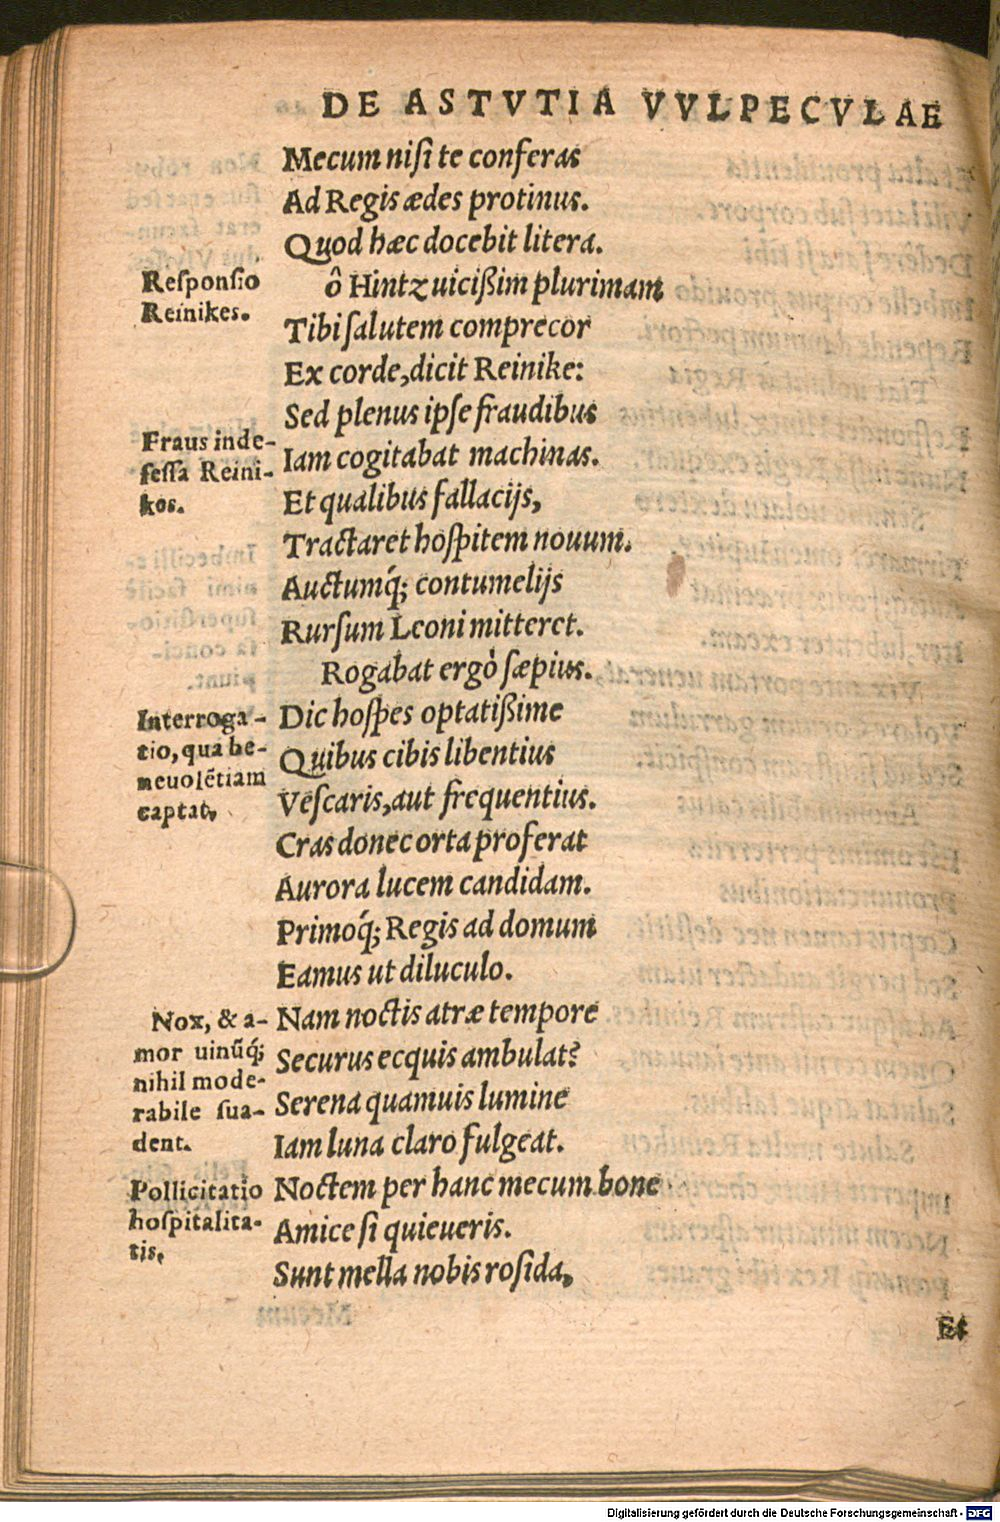 DE ASTVTIA VVLPECVLAE
Mecum nisi te conferas
Ad Regis ædes protinus.
Quod hæc docebit litera.
Responsio
Reinikes.
ô Hintz uicißim plurimam
Tibi salutem comprecor
Ex corde, dicit Reinike:
Sed plenus ipse fraudibus
Fraus inde-
fessa Reini-
kos.
Iam cogitabat machinas.
Et qualibus fallacijs,
Tractaret hospitem nouum.
Auctumq́; contumelijs
Rursum Leoni mitteret.
Rogabat ergò sæpius.
Interroga-
tio, qua be-
neuolẽtiam
captat,
Dic hospes optatißime
Quibus cibis libentius
Vescaris, aut frequentius.
Cras donec orta proferat
Aurora lucem candidam.
Primoq́; Regis ad domum
Eamus ut diluculo.
Nox, & a-
mor uinũq́;
nihil mode-
rabile sua-
dent.
Nam noctis atræ tempore
Securus ecquis ambulat?
Serena quamuis lumine
Iam luna claro fulgeat.
Pollicitatio
hospitalita-
tis,
Noctem per hanc mecum bone
Amice si quieueris.
Sunt mella nobis rosida,
Et
Digitalisierung gefördert durch die Deutsche Forschungsgemeinschaft - DFG